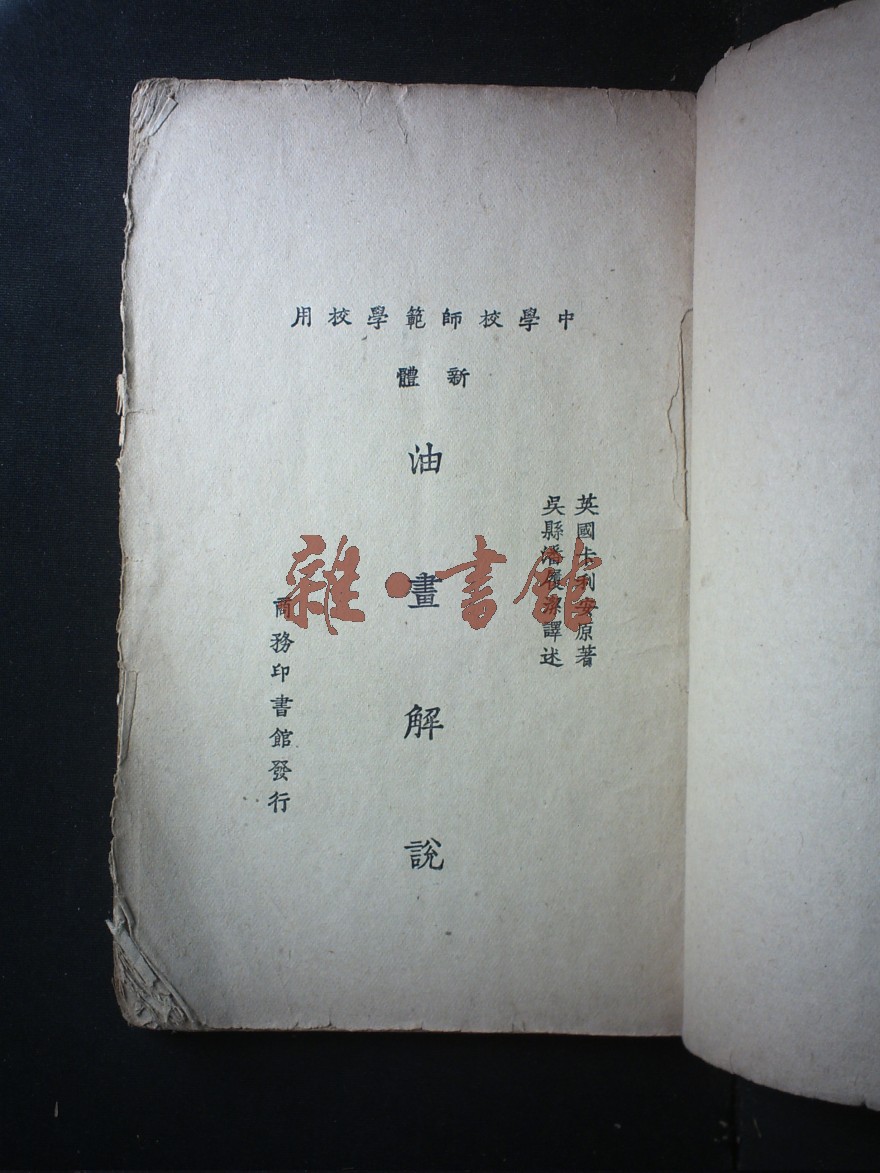 中學校師範學校用
新體
英國卡利安原著
吳縣潘履洁譯述
油畫解説
商務印書館發行
雜·書館